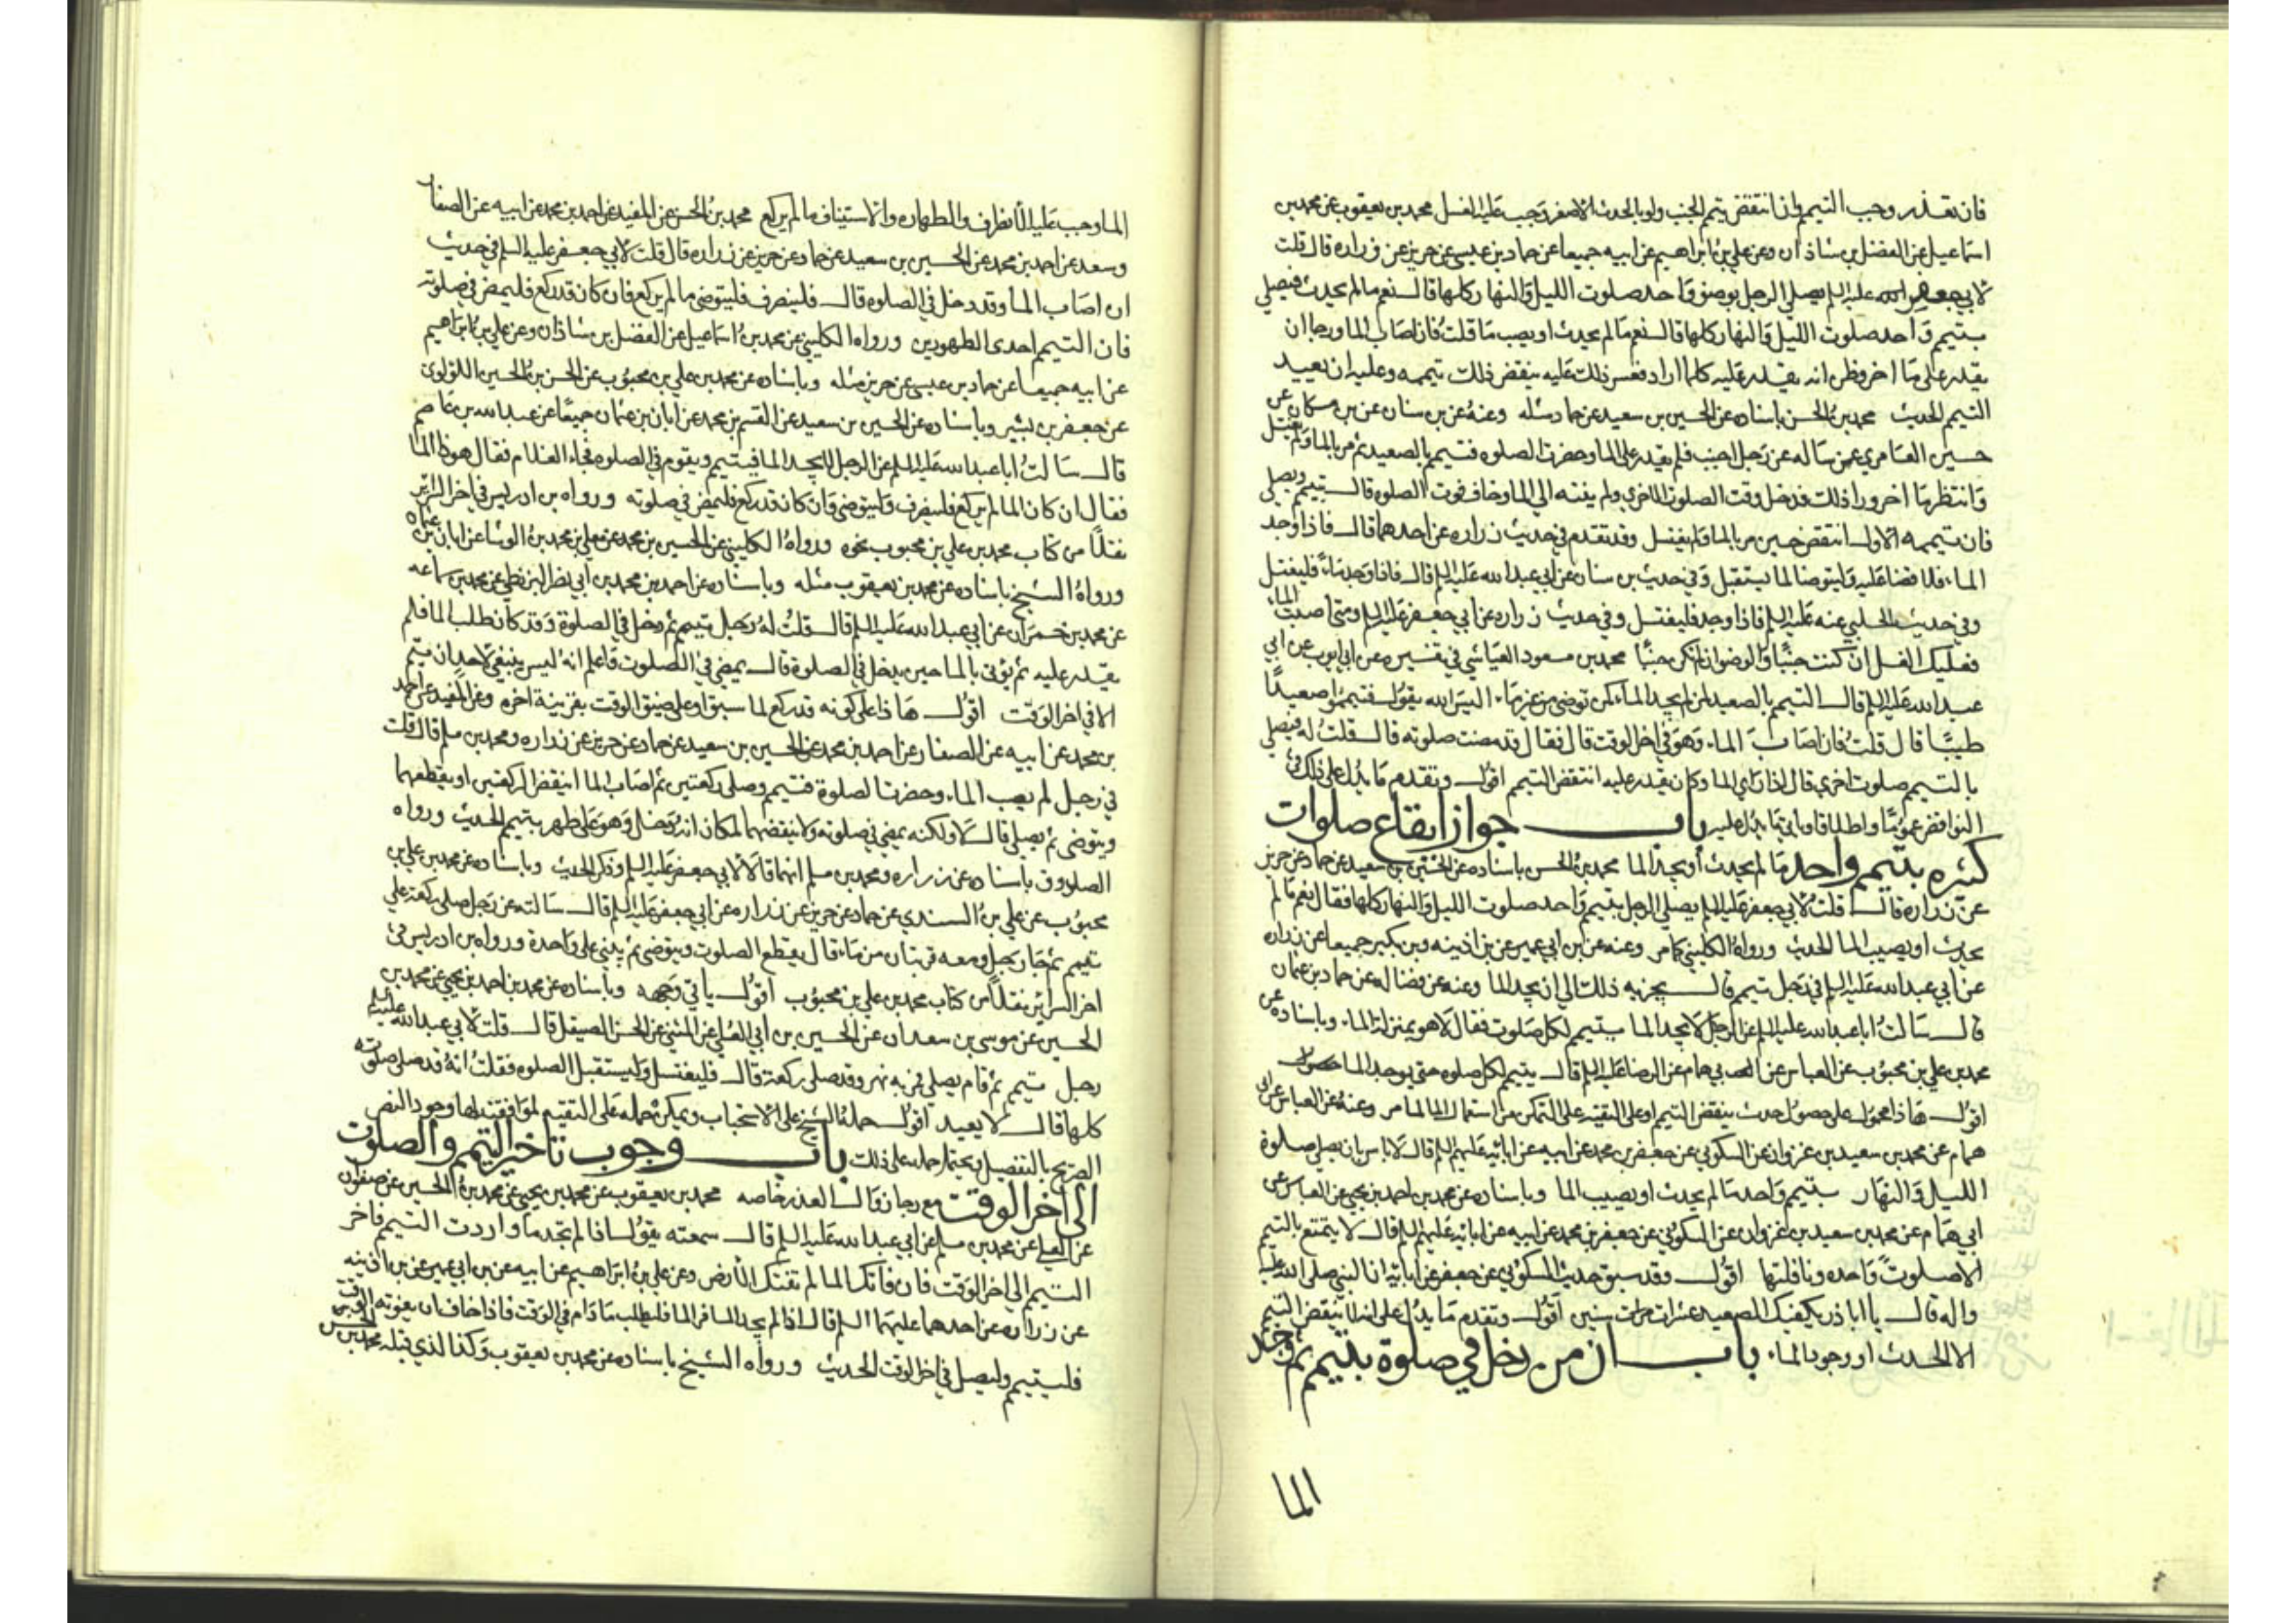 فان تعذر وجب التيمم وان انتقض تيمم الجنب ولو بالحدث الاصغر وجب عليه الغسل محمد بن يعقوب عن محمد بن
اسماعيل عن الفضل بن شاذان وعن علي بن ابراهيم عن ابيه جميعا عن حماد بن عيسى عن حريز عن زراره قال قلت
لابي جعفر عليه السلم يصلي الرجل بوضو واحد صلوت الليل والنهار كلها قال نعم ما لم يحدث فيصلي
بتيمم واحد صلوت الليل والنهار كلها قال نعم ما لم يحدث او يصب ما قلت فان اصاب الما ورجا ان
يقدر على ما اخر وظن انه يقدر عليه كلما اراد فعسر ذلك عليه ينقض ذلك تيممه وعليه ان يعيد
التيمم الحديث محمد بن الحسن باسناده عن الحسين بن سعيد عن حماد مثله وعنه عن بن سنان عن بن مسكان عن
حسين العامري عمن ساله عن رجل اجنب فلم يقدر على الما وحضرت الصلوه فتيمم بالصعيد ثم مر بالما ولم يغتسل
وانتظر ما اخر ورا ذلك فدخل وقت الصلوت الاخري ولم ينته الي الما وخاف فوت الصلوه قال يتيمم ويصلي
فان تيممه الاول انتقض حين مر بالما ولم يغتسل وقد تقدم في حديث زراره عن احدهما قال فاذا وجد
الماء فلا قضا عليه وليتوضا لما يستقبل وفي حديث بن سنان عن ابي عبد الله عليه السلم قال فاذا وجد ماء فليغتسل
وفي حديث الحلبي عنه عليه السلم فاذا وجد فليغتسل وفي حديث زراره عن ابي جعفر عليه السلم ومتى اصبت الماء
فعليك الغسل ان كنت جنبا والوضو ان لم تكن جنبا محمد بن مسعود العياشي في تفسيره عن ابي ايوب عن ابي
عبد الله عليه السلم قال التيمم بالصعيد لمن لم يجد الماء كمن توضى من غدير ماء اليس الله يقول فتيمموا صعيدا
طيبا قال قلت فان اصاب الماء وهو في اخر الوقت قال فقال قد مضت صلوته قال قلت له فيصلي
بالتيمم صلوت اخري قال اذا راي الما وكان يقدر عليه انتقض التيمم اقول وتقدم ما يدل على ذلك في
النواقض عموما واطلاقا وياتي ما يدل عليه باب جواز ايقاع صلوات
كثره بتيمم واحد ما لم يحدث او يجد الما محمد بن الحسن باسناده عن الحسين بن سعيد عن حماد عن حريز
عن زراره قال قلت لابي جعفر عليه السلم يصلي الرجل بتيمم واحد صلوت الليل والنهار كلها فقال نعم ما لم
يحدث او يصيب الما الحديث ورواه الكليني كما مر وعنه عن بن ابي عمير عن بن اذينه وبن بكير جميعا عن زراره
عن ابي عبد الله عليه السلم في رجل تيمم قال يجزيه ذلك الى ان يجد الما وعنه عن فضاله عن حماد بن عثمان
قال سالت ابا عبد الله عليه السلم عن الرجل لا يجد الما يتيمم لكل صلوت فقال لا هو بمنزلة الماء وباسناده عن
محمد بن علي بن محبوب عن العباس عن ابي همام عن الرضا عليه السلم قال يتيمم لكل صلوه حتى يوجد الما
اقول هاذا محمول على حصول حدث ينقض التيمم او على التقيه او على التمكن من استعمال الما لما مر وعنه عن العباس عن ابي
همام عن محمد بن سعيد بن غزوان عن السكوني عن جعفر بن محمد عن ابيه عن ابائه عليهم السلم قال لا باس بان يصلي صلوة
الليل والنهار بتيمم واحد ما لم يحدث او يصيب الما وباسناده عن محمد بن احمد بن يحيى عن العباس عن
ابي همام عن محمد بن سعيد بن غزوان عن السكوني عن جعفر بن محمد عن ابيه عن ابائه عليهم السلم قال لا يتمتع بالتيمم
الا صلوت واحده ونافلتها اقول وقد سبق حديث السكوني عن جعفر عن ابائه ان النبي صلى الله عليه
واله قال يا ابا ذر يكفيك الصعيد عشر سنين اقول وتقدم ما يدل على انه لا ينقض التيمم
الا الحدث او وجود الماء باب ان من دخل في صلوة بتيمم ثم وجد
الما
الما وجب عليه الانصراف والطهاره والاستيناف ما لم يركع محمد بن الحسن عن المفيد عن احمد بن محمد عن ابيه عن الصفار
وسعد عن احمد بن محمد عن الحسين بن سعيد عن حماد عن حريز عن زراره قال قلت لابي جعفر عليه السلم في حديث
ان اصاب الما وقد دخل في الصلوه قال فلينصرف فليتوضى ما لم يركع فان كان قد ركع فليمض في صلوته
فان التيمم احدى الطهورين ورواه الكليني عن محمد بن اسماعيل عن الفضل بن شاذان وعن علي بن ابراهيم
عن ابيه جميعا عن حماد بن عيسى عن حريز مثله وباسناده عن محمد بن علي بن محبوب عن الحسن بن الحسين اللؤلؤى
عن جعفر بن بشير وباسناده عن الحسين بن سعيد عن القسم بن محمد عن ابان بن عثمان جميعا عن عبد الله بن عاصم
قال سالت ابا عبد الله عليه السلم عن الرجل لا يجد الما فيتيمم ويقوم في الصلوه فجاء الغلام فقال هوذا الما
فقال ان كان لم يركع فلينصرف وليتوضى وان كان قد ركع فليمض في صلوته ورواه بن ادريس في اخر السرائر
نقلا من كتاب محمد بن علي بن محبوب نحوه ورواه الكليني عن الحسين بن محمد عن معلى بن محمد عن الوشا عن ابان بن عثمان
ورواه الشيخ باسناده عن محمد بن يعقوب مثله وباسناده عن احمد بن محمد بن ابي نصر البزنطي عن محمد بن سماعه
عن محمد بن حمران عن ابي عبد الله عليه السلم قال قلت له رجل تيمم ثم دخل في الصلوة وقد كان طلب الما فلم
يقدر عليه ثم يؤتى بالما حين يدخل في الصلوة قال يمضي في الصلوت واعلم انه ليس ينبغي لاحد ان يتيمم
الا في اخر الوقت اقول هاذا على كونه قد ركع لما سبق او على ضيق الوقت بقرينة اخره وعن المفيد عن احمد
بن محمد عن ابيه عن الصفار عن احمد بن محمد عن الحسين بن سعيد عن حماد عن حريز عن زراره ومحمد بن مسلم قال قلت
في رجل لم يصب الماء وحضرت الصلوة فتيمم وصلى ركعتين ثم اصاب الما اينقض الركعتين او يقطعهما
ويتوضى ثم يصلي قال لا ولكنه يمضي في صلوته ولا ينقضهما لمكان انه دخل وهو على طهر بتيمم الحديث ورواه
الصدوق باسناده عن زراره ومحمد بن مسلم انهما قالا لابي جعفر عليه السلم وذكر الحديث وباسناده عن محمد بن علي بن
محبوب عن علي بن السندي عن حماد عن حريز عن زراره عن ابي جعفر عليه السلم قال سالته عن رجل صلى ركعة على
تيمم ثم جاء رجل ومعه قربتان من ماء قال يقطع الصلوت ويتوضى ثم يبني على واحدة ورواه بن ادريس في
اخر السرائر نقلا من كتاب محمد بن علي بن محبوب اقول ياتي وجهه وباسناده عن محمد بن احمد بن يحيى عن محمد بن
الحسين عن موسى بن سعدان عن الحسين بن ابي العلي عن المثنى عن الحسن الصيقل قال قلت لابي عبد الله عليه السلم
رجل تيمم ثم قام يصلي فمر به نهر وقد صلى ركعة قال فليغتسل وليستقبل الصلوه فقلت انه قد صلى صلوته
كلها قال لا يعيد اقول حمله الشيخ على الاستحباب ويمكن حمله على التقيه لموافقته لها ووجود النص
الصريح بالتفصيل ويحتمل حمله على ذلك باب وجوب تاخير التيمم والصلوت
الى اخر الوقت مع رجا زوال العذر خاصه محمد بن يعقوب عن محمد بن يحيى عن محمد بن الحسين عن صفوان
عن العلي عن محمد بن مسلم عن ابي عبد الله عليه السلم قال سمعته يقول اذا لم تجد ما واردت التيمم فاخر
التيمم الى اخر الوقت فان فاتك الما لم تفتك الارض وعن علي بن ابراهيم عن ابيه عن بن ابي عمير عن بن اذينه
عن زراره عن احدهما عليهما السلم قال اذا لم يجد المسافر الما فليطلب ما دام في الوقت فاذا خاف ان يفوته الوقت
فليتيمم وليصل في اخر الوقت الحديث ورواه الشيخ باسناده عن محمد بن يعقوب وكذا الذي قبله محمد بن الحسن